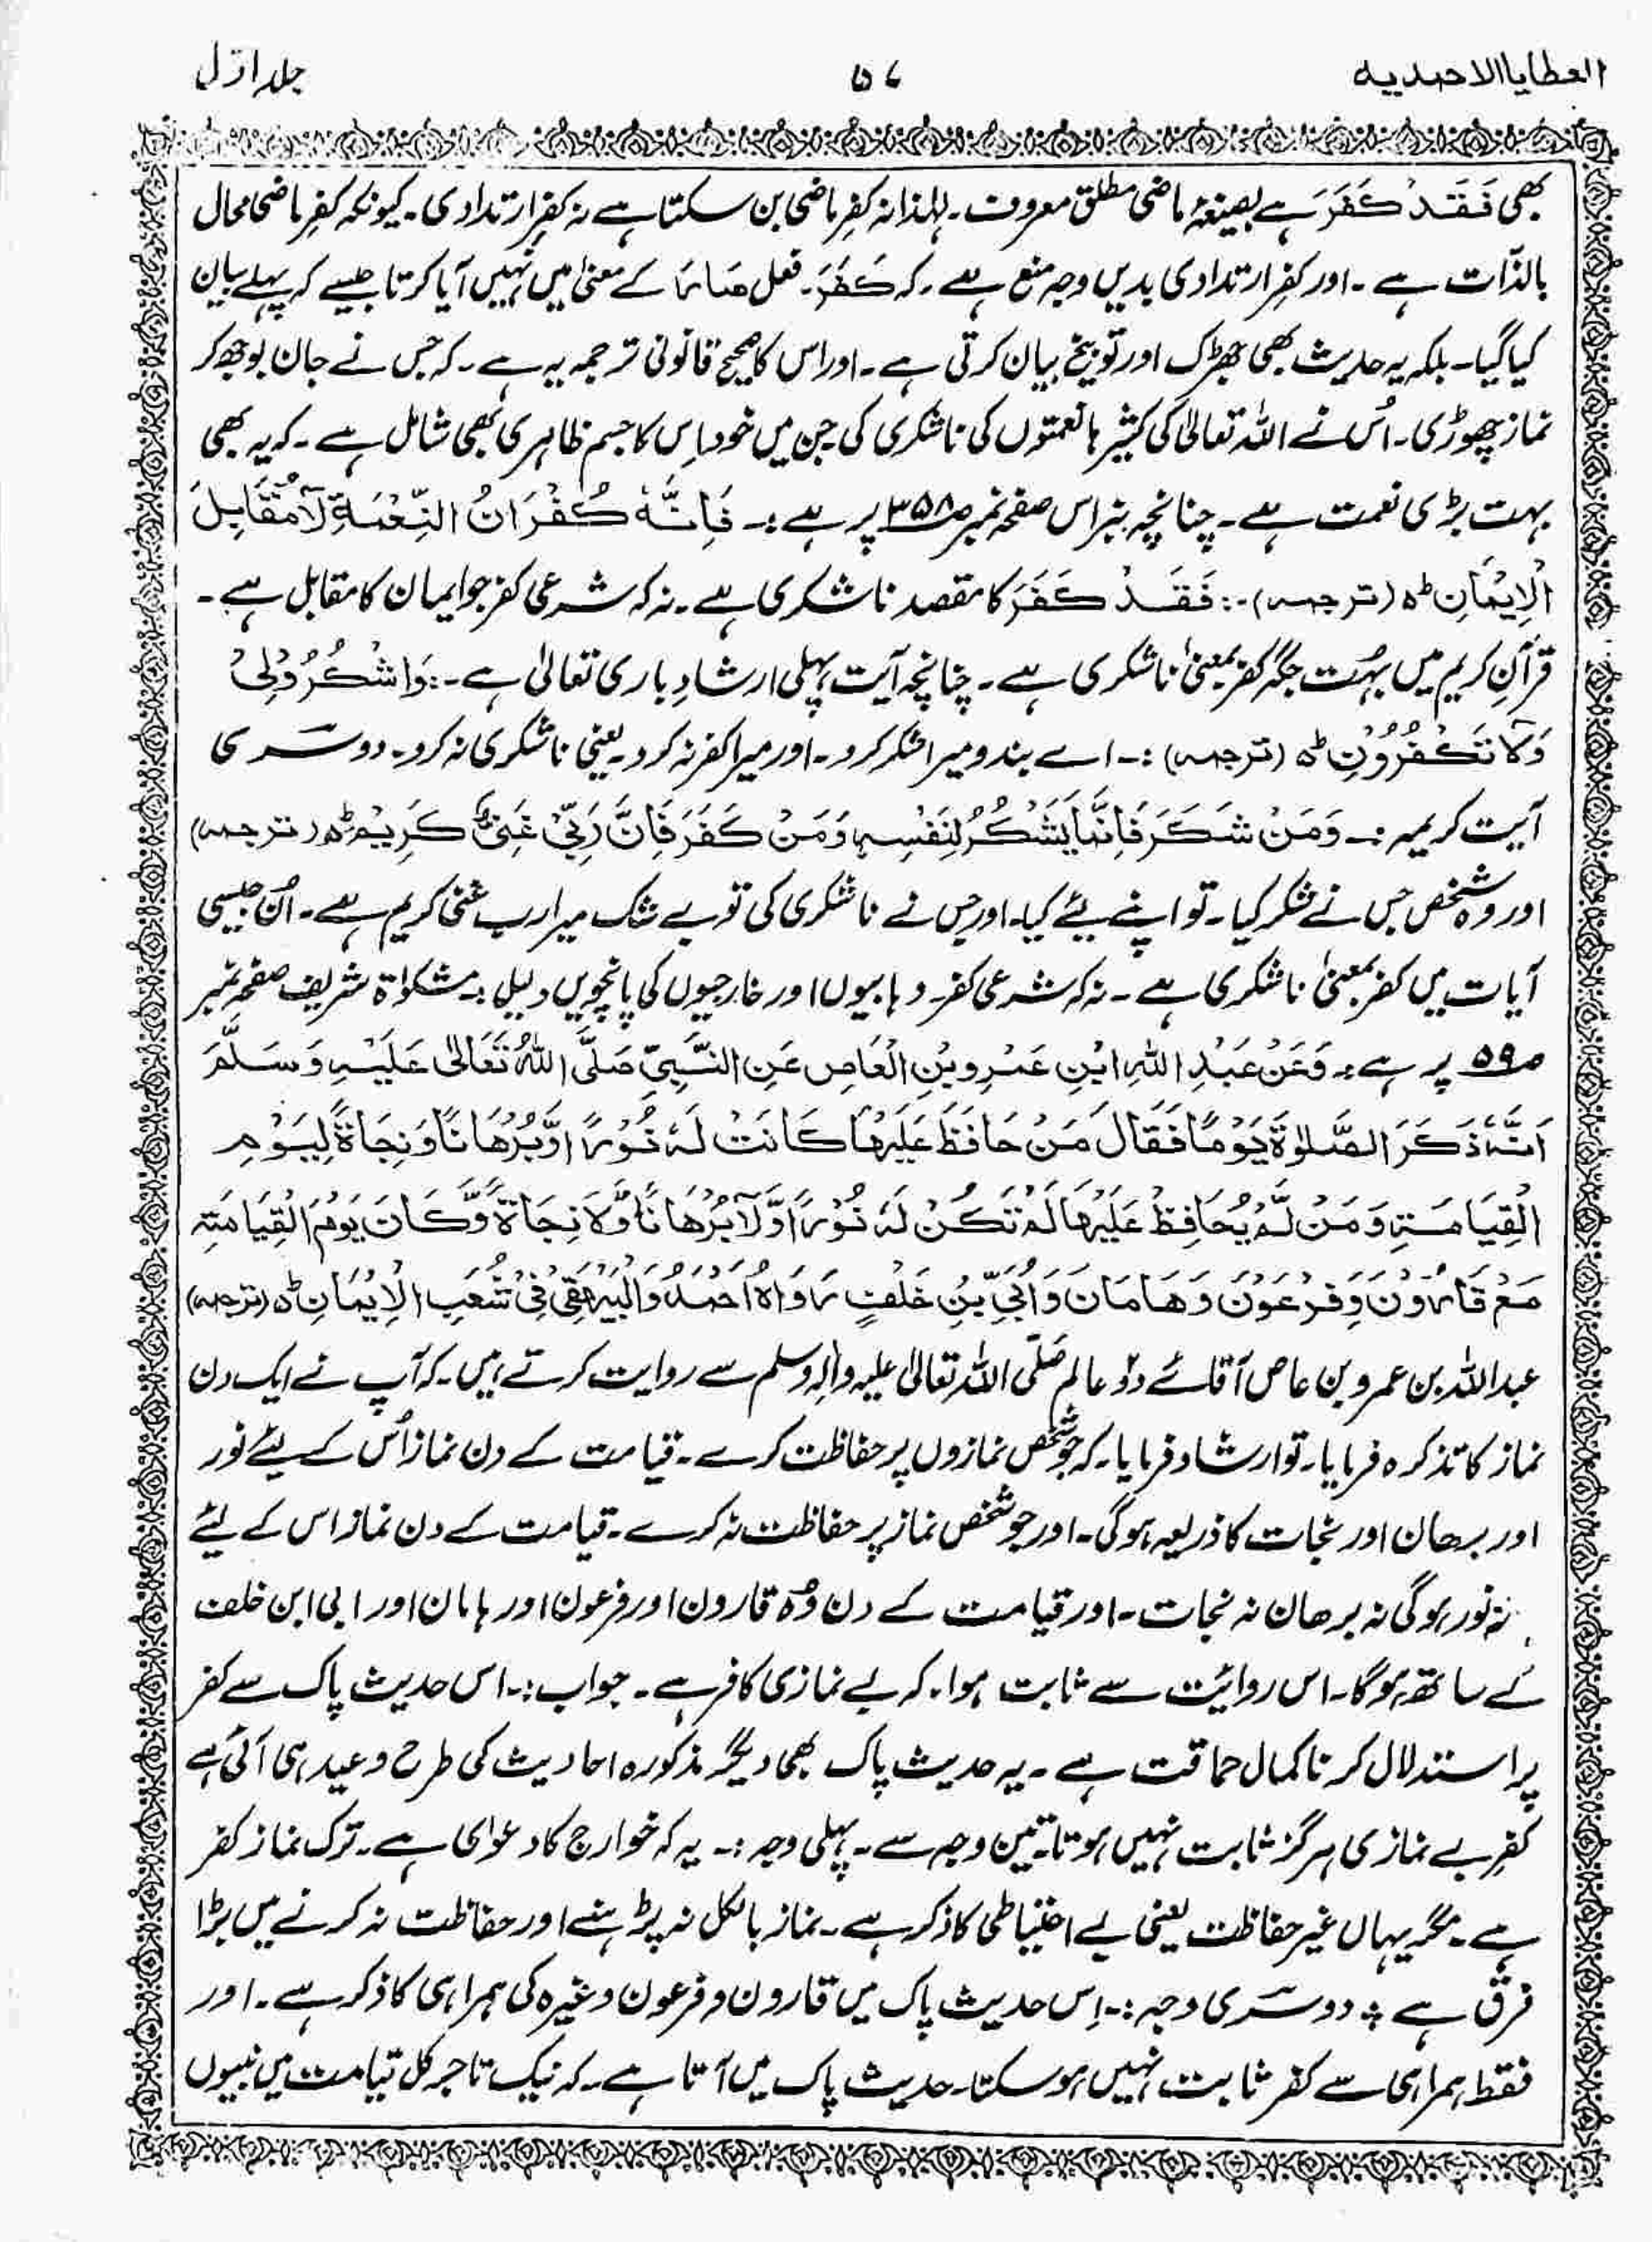 العطایا الاحمدیہ ۵۷ جلد اوّل
بھی فَقَدْ كَفَرَ ہے بصیغۂ ماضی مطلق معروف۔ لہٰذا نہ کفرِ ماضی بن سکتا ہے نہ کفرِ ارتدادی۔ کیونکہ کفرِ ماضی محال
بالذّات ہے۔ اور کفرِ ارتدادی بدیں وجہ منع ہے۔ کہ کَفَرَ۔ فعل صَارَ کے معنیٰ میں نہیں آیا کرتا جیسے کہ پہلے بیان
کیا گیا۔ بلکہ یہ حدیث بھی جھڑک اور توبیخ بیان کرتی ہے۔ اور اس کا صحیح قانونی ترجمہ یہ ہے۔ کہ جس نے جان بوجھ کر
نماز چھوڑی۔ اُس نے اللہ تعالیٰ کی کثیر ہا نعمتوں کی ناشکری کی جن میں خود اِس کا جسم ظاہری بھی شامل ہے۔ کہ یہ بھی
بہت بڑی نعمت ہے۔ چنانچہ نبراس صفحہ نمبر ص۳۵۸ پر ہے:۔ فَاِنَّهٗ كُفْرَانُ النِّعْمَةِ لَا مُقَابِلَ
الْاِیْمَانِ ط٥ (ترجمہ)۔: فَقَدْ كَفَرَ کا مقصد ناشکری ہے۔ نہ کہ شرعی کفر جو ایمان کا مقابل ہے۔
قرآنِ کریم میں بہُت جگہ کفر بمعنیٰ ناشکری ہے۔ چنانچہ آیت پہلی ارشادِ باری تعالیٰ ہے۔: وَاشْكُرُوْلِیْ
وَلَا تَكْفُرُوْنِ ط٥ (ترجمہ):۔ اے بندو میرا شکر کرو۔ اور میرا کفر نہ کرو۔ یعنی ناشکری نہ کرو۔ دوسَری
آیت کریمہ:۔ وَمَنْ شَكَرَ فَاِنَّمَا یَشْكُرُ لِنَفْسِهٖ وَمَنْ كَفَرَ فَاِنَّ رَبِّیْ غَنِیٌّ كَرِیْمٌ ط٥ (ترجمہ)
اور وہ شخص جس نے شکر کیا۔ تو اپنے لئے کیا۔ اور جس نے ناشکری کی تو بے شک میرا رب غنی کریم ہے۔ اُن جیسی
آیات میں کفر بمعنیٰ ناشکری ہے۔ نہ کہ شرعی کفر۔ وہابیوں اور خارجیوں کی پانچویں دلیل:۔ مشکوٰۃ شریف صفحہ نمبر
ص۵۹ پر ہے:۔ وَعَنْ عَبْدِ اللّٰهِ ابْنِ عَمْرِو بْنِ الْعَاصِ عَنِ النَّبِیِّ صَلَّی اللّٰهُ تَعَالٰی عَلَیْهِ وَسَلَّمَ
اَنَّهٗ ذَكَرَ الصَّلوٰةَ یَوْمًا فَقَالَ مَنْ حَافَظَ عَلَیْهَا كَانَتْ لَهٗ نُوْرًا وَّبُرْهَانًا وَنِجَاةً لِیَوْمِ
الْقِیَامَةِ وَمَنْ لَّمْ یُحَافِظْ عَلَیْهَا لَمْ تَكُنْ لَهٗ نُوْرًا وَّلَا بُرْهَانًا وَّلَا نِجَاةً وَّكَانَ یَوْمَ الْقِیَامَةِ
مَعَ قَارُوْنَ وَفِرْعَوْنَ وَهَامَانَ وَاُبَیِّ بْنِ خَلْفٍ رَوَاهُ اَحْمَدُ وَالْبَیْهَقِیْ فِیْ شُعَبِ الْاِیْمَانِ ط٥ (ترجمہ)
عبداللہ بن عمرو بن عاص آقائے دو عالم صلّی اللہ تعالیٰ علیہ واٰلہ وسلم سے روایت کرتے ہیں۔ کہ آپ نے ایک دن
نماز کا تذکرہ فرمایا۔ تو ارشاد فرمایا۔ کہ جو شخص نمازوں پر حفاظت کرے۔ قیامت کے دن نماز اُس کے لیئے نور
اور برھان اور نجات کا ذریعہ ہوگی۔ اور جو شخص نماز پر حفاظت نہ کرے۔ قیامت کے دن نماز اس کے لیئے
نہ نور ہوگی نہ برھان نہ نجات۔ اور قیامت کے دن وُہ قارون اور فرعون اور ہامان اور ابی ابن خلف
کے ساتھ ہوگا۔ اس روائیت سے ثابت ہوا۔ کہ بے نمازی کافر ہے۔ جواب:۔ اس حدیث پاک سے کفر
پر استدلال کرنا کمال حماقت ہے۔ یہ حدیث پاک بھی دیگر مذکورہ احادیث کی طرح وعید ہی آئی ہے
کفرِ بے نمازی ہرگز ثابت نہیں ہوتا تین وجہ سے۔ پہلی وجہ:۔ یہ کہ خوارج کا دعوٰی ہے۔ ترک نماز کفر
ہے۔ مگر یہاں غیر حفاظت یعنی بے احتیاطی کا ذکر ہے۔ نماز بالکل نہ پڑہنے اور حفاظت نہ کرنے میں بڑا
فرق ہے ؛ دوسَری وجہ:۔ اِس حدیث پاک میں قارون و فرعون وغیرہ کی ہمراہی کا ذکر ہے۔ اور
فقط ہمراہی سے کفر ثابت نہیں ہو سکتا۔ حدیث پاک میں آتا ہے۔ کہ نیک تاجر کل قیامت میں نبیوں